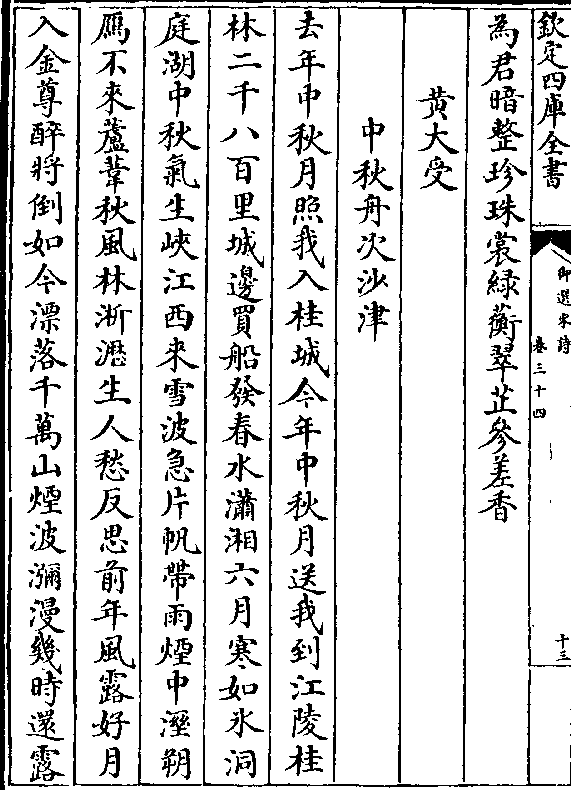 欽定四庫全書
御選宋詩
卷三十四
十三
為君暗整珍珠裳綠蘅翠芷參差香
黄大受
中秋舟次沙津
去年中秋月照我入桂城今年中秋月送我到江陵桂
林二千八百里城邊買船發春水瀟湘六月寒如氷洞
庭湖中秋氣生峽江西來雪波急片帆帶雨煙中溼朔
鴈不來蘆葦秋風林淅瀝生人愁反思前年風露好月
入金尊醉將倒如今漂落千萬山煙波瀰漫幾時還露